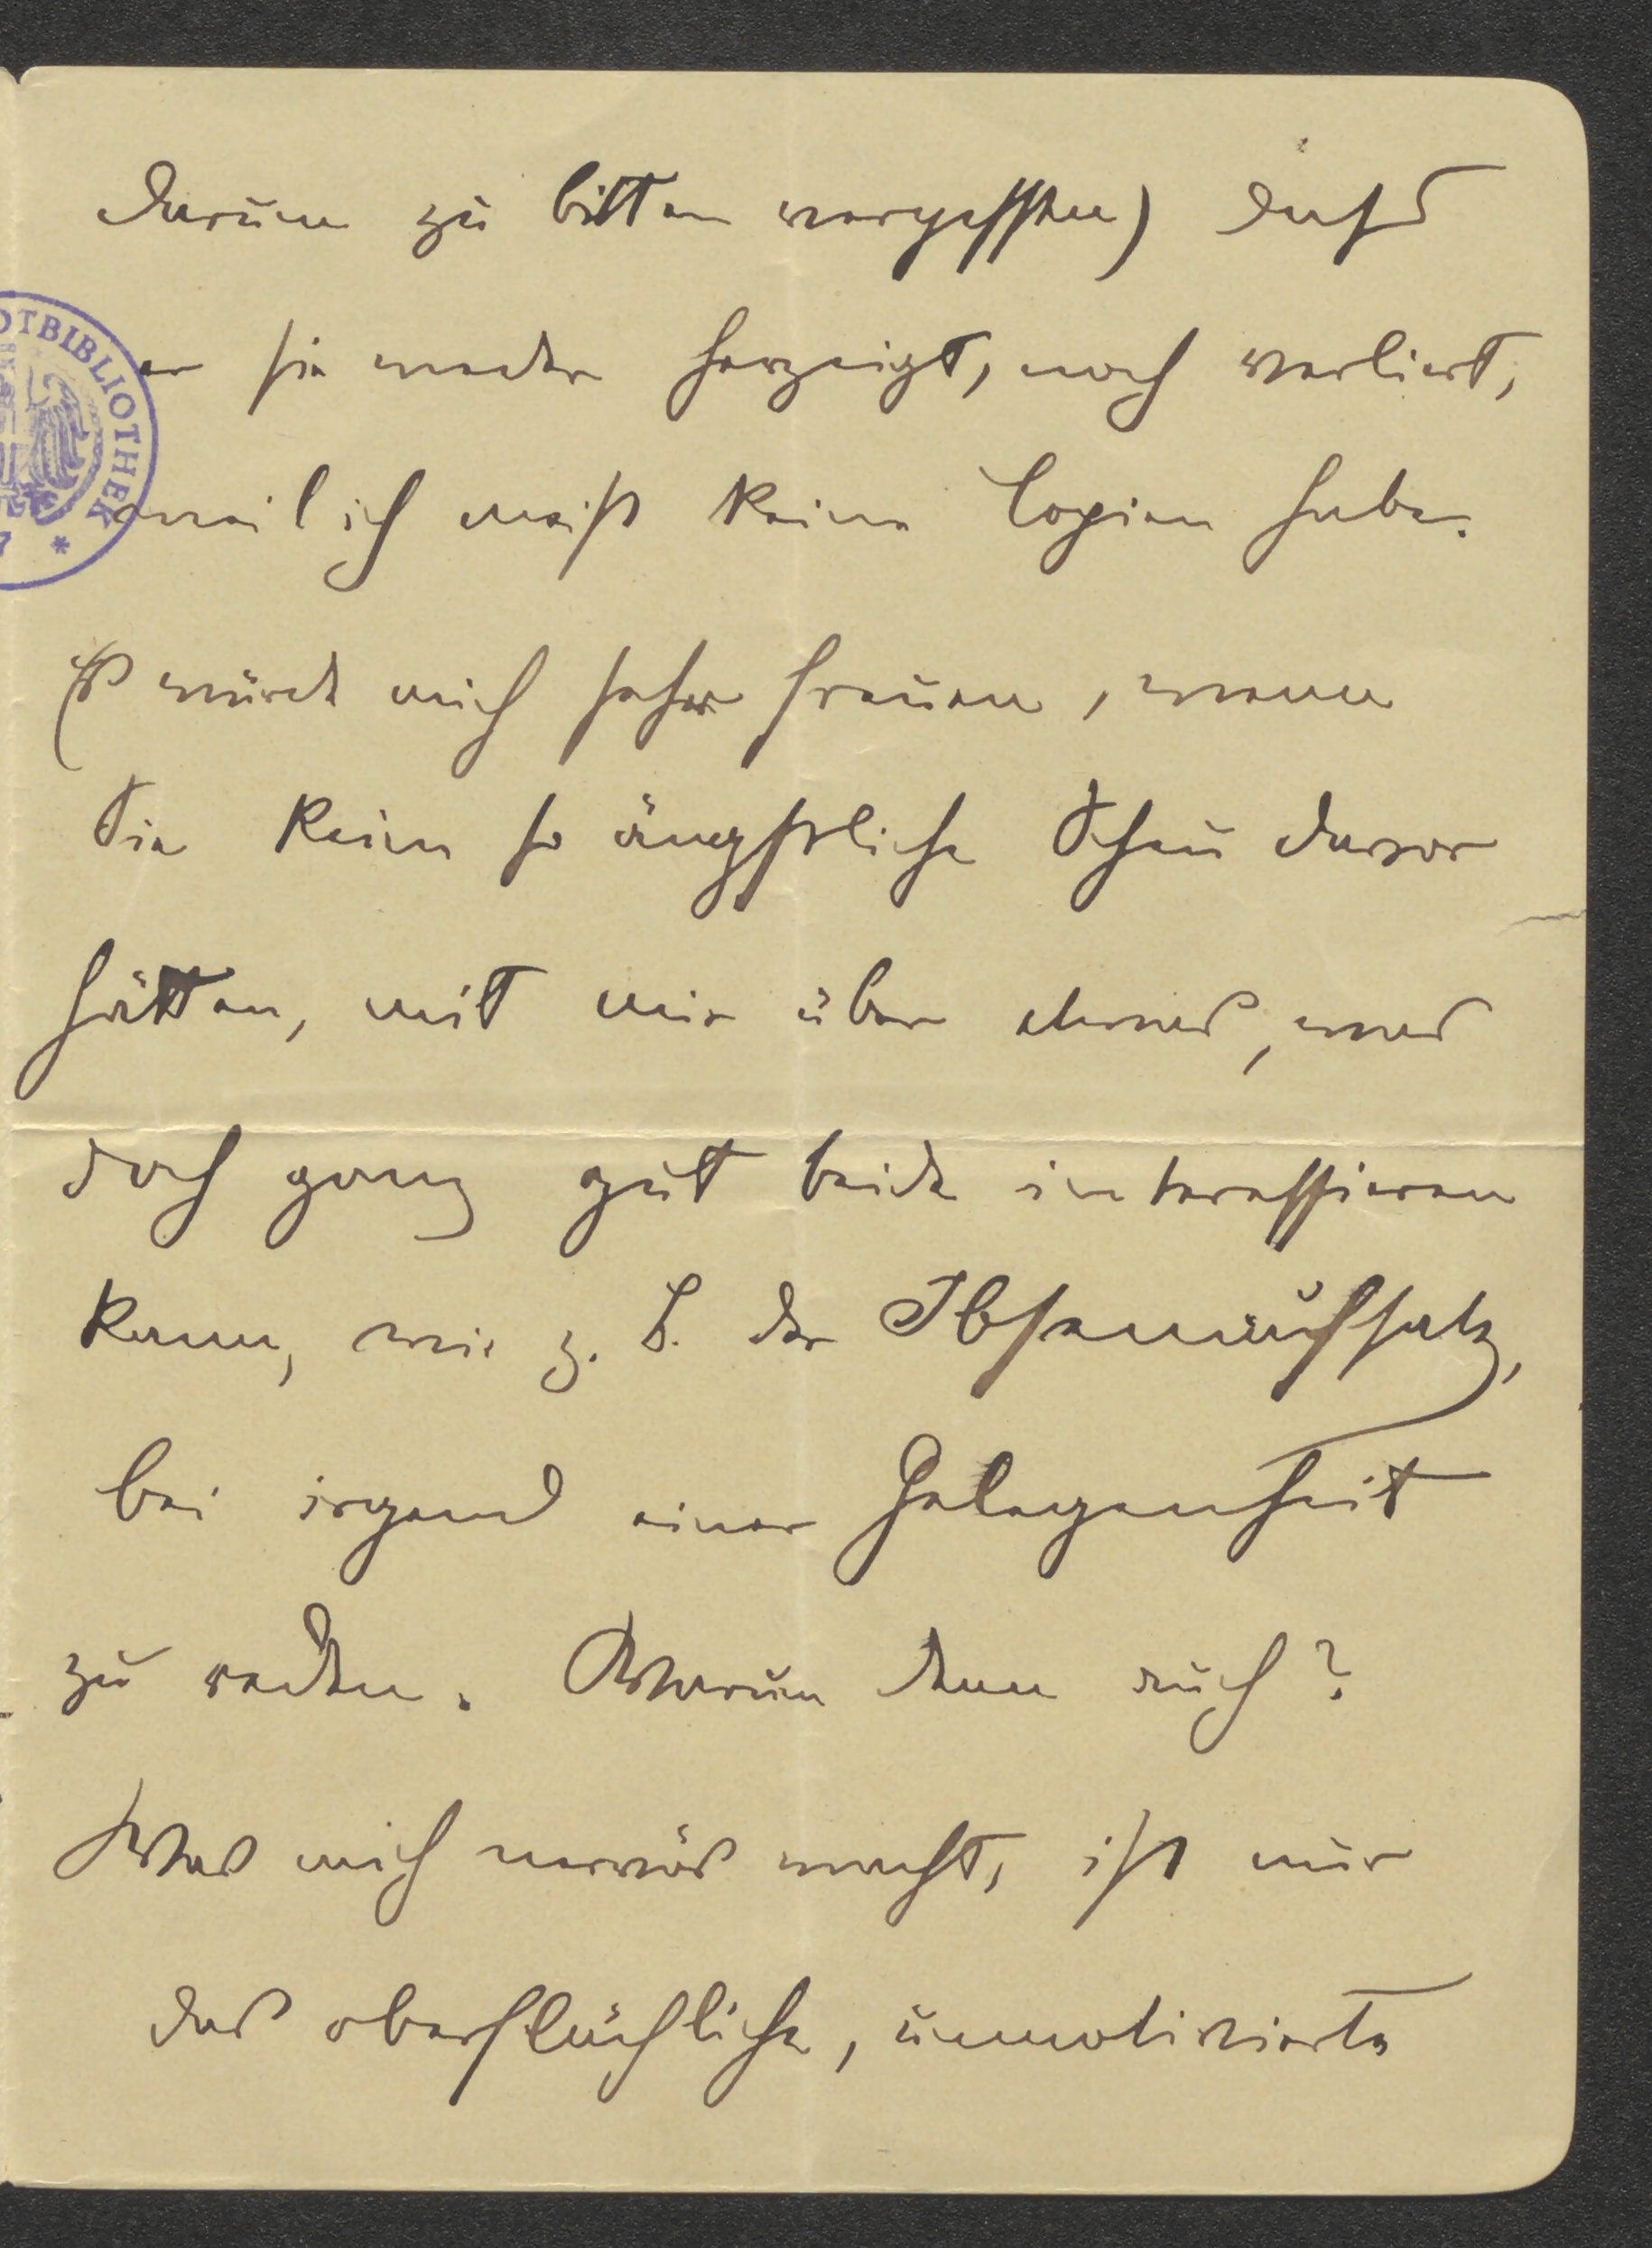 darum zu bitten vergessen) dass
er sie weder herzeigt, noch verliert,
weil ich meist keine Copien habe.
Es würde mich sehr freuen, wenn
Sie keine so ängstliche Scheu davor
hätten, mit mir über etwas, was
doch ganz gut beide interessieren
kann, wie z. B. der Ibsenaufsatz,
bei irgend einer Gelegenheit
zu reden. Warum denn auch?
Was mich nervös macht, ist nur
das oberflächliche, unmotivierte
OTBIBLIOTHEK *